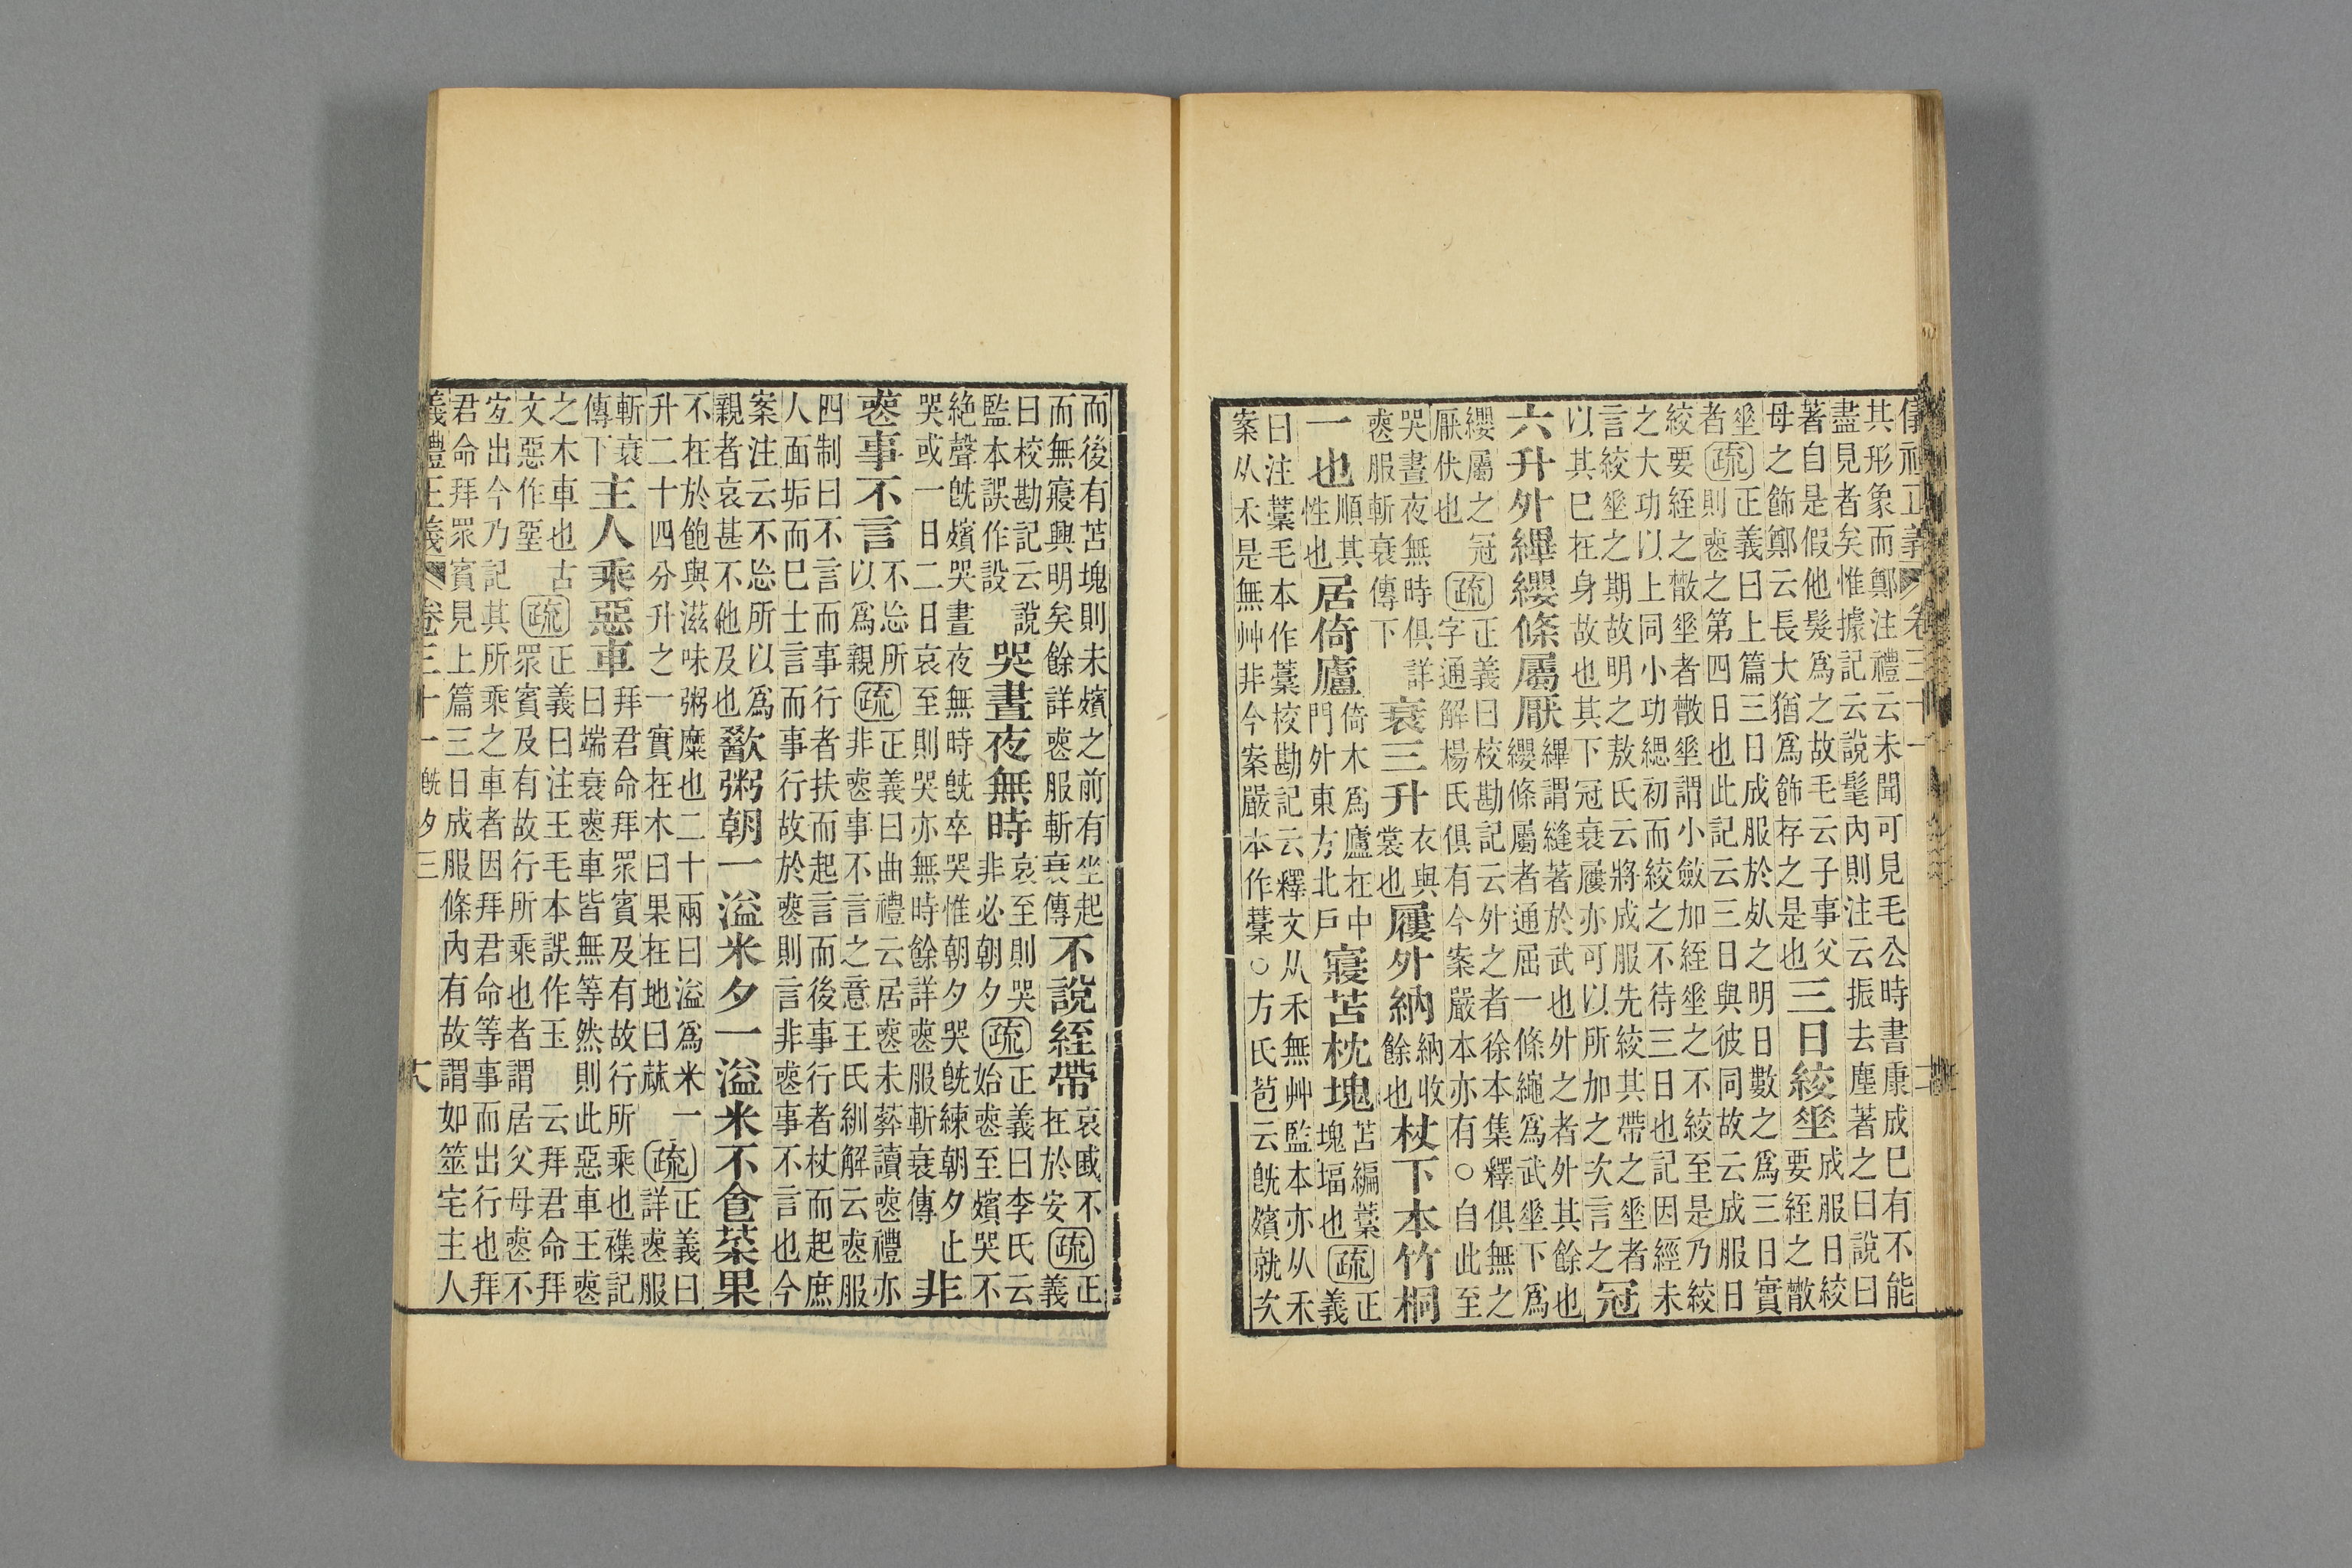 儀禮正義 卷三十一
其形象而鄭注禮云未聞可見毛公時書康成巳有不能
盡見者矣惟據記云說髦內則注云振去塵著之曰說曰
著自是假他髮爲之故毛云子事父
母之飾鄭云長大猶爲飾存之是也
三日絞垼
成服日絞
要絰之散
垼者
疏
正義曰上篇三日成服於䢜之明日數之爲三日實
則喪之第四日也此記云三日與彼同故云成服日
絞要絰之散垼者散垼謂小斂加絰垼之不絞至是乃絞
之大功以上同小功緦初而絞之不待三日也記因經未
言絞垼之期故明之敖氏云將成服先絞其帶之垼者
以其巳在身故也其下冠衰屨亦可以所加之次言之
冠
六升外縪纓條屬厭
縪謂縫著於武也外之者外其餘也
纓條屬者通屈一條繩爲武垼下爲
纓屬之冠
厭伏也
疏
正義曰校勘記云外之者徐本集釋俱無之
字通解楊氏俱有今案嚴本亦有○自此至
哭晝夜無時俱詳
喪服斬衰傳下
衰三升
衣與
裳也
屨外納
納收
餘也
杖下本竹桐
一也
順其
性也
居倚廬
倚木爲廬在中
門外東方北戶
寢苫枕塊
苫編藁
塊堛也
疏
正
義
曰注藁毛本作藁校勘記云釋文从禾無艸監本亦从禾
案从禾是無艸非今案嚴本作藁○方氏苞云旣殯就次
而後有苫塊則未殯之前有坐起
而無寢興明矣餘詳喪服斬衰傳
不說絰帶
哀戚不
在於安
疏
正
義
曰校勘記云說
監本誤作設
哭晝夜無時
哀至則哭
非必朝夕
疏
正義曰李氏云
始喪至殯哭不
絶聲旣殯哭晝夜無時旣卒哭惟朝夕哭旣練朝夕止
哭或一日二日哀至則哭亦無時餘詳喪服斬衰傳
非
喪事不言
不忘所
以爲親
疏
正義曰曲禮云居喪未葬讀喪禮亦
非喪事不言之意王氏紃解云喪服
四制曰不言而事行者扶而起言而後事行者杖而起庶
人面垢而巳士言而事行故於喪則言非喪事不言也今
案注云不忘所以爲
親者哀甚不他及也
歠粥朝一溢米夕一溢米不食菜果
不在於飽與滋味粥糜也二十兩曰溢爲米一
升二十四分升之一實在木曰果在地曰蓏
疏
正義曰
詳喪服
斬衰
傳下
主人乘惡車
拜君命拜眾賓及有故行所乘也襍記
曰端衰喪車皆無等然則此惡車王喪
之木車也古
文惡作堊
疏
正義曰注王毛本誤作玉 云拜君命拜
眾賓及有故行所乘也者謂居父母喪不
宐出今乃記其所乘之車者因拜君命等事而出行也拜
君命拜眾賓見上篇三日成服條內有故謂如筮宅主人
義禮正義 卷三十一 旣夕三